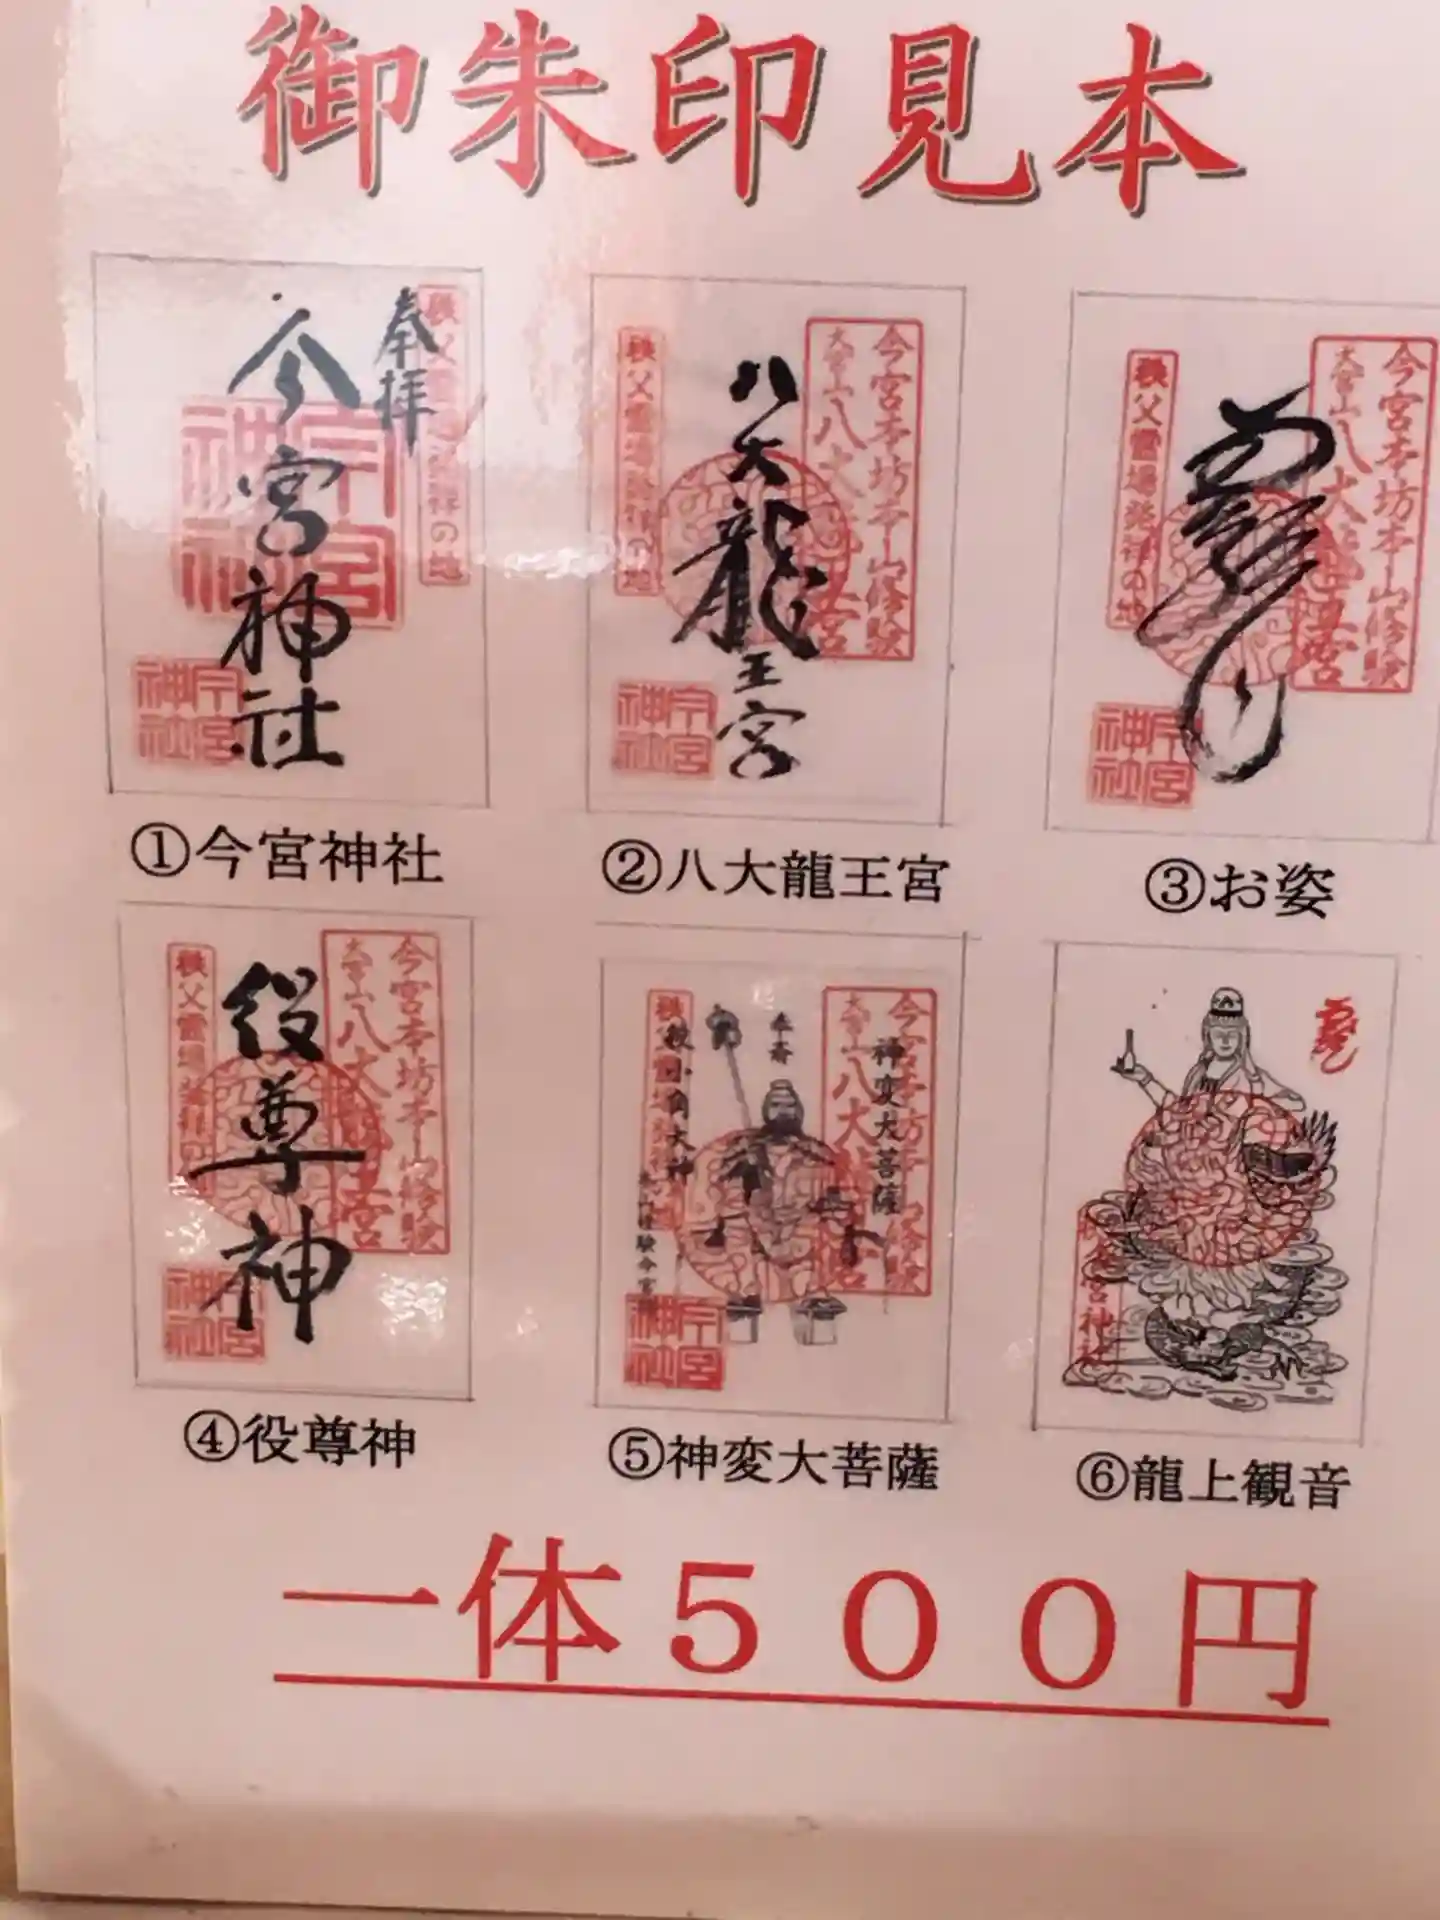 御朱印見本
奉拝
今宮神社
秩父霊場発祥の地
今宮神社
八大龍王宮
今宮本坊本山修験
大宮山八大龍王宮
秩父霊場発祥の地
今宮神社
今宮本坊本山修験
大宮山八大龍王宮
秩父霊場発祥の地
今宮神社
①今宮神社
②八大龍王宮
③お姿
役尊神
今宮本坊本山修験
大宮山八大龍王宮
秩父霊場発祥の地
今宮神社
神変大菩薩
今宮神社
今宮神社
④役尊神
⑤神変大菩薩
⑥龍上観音
一体500円